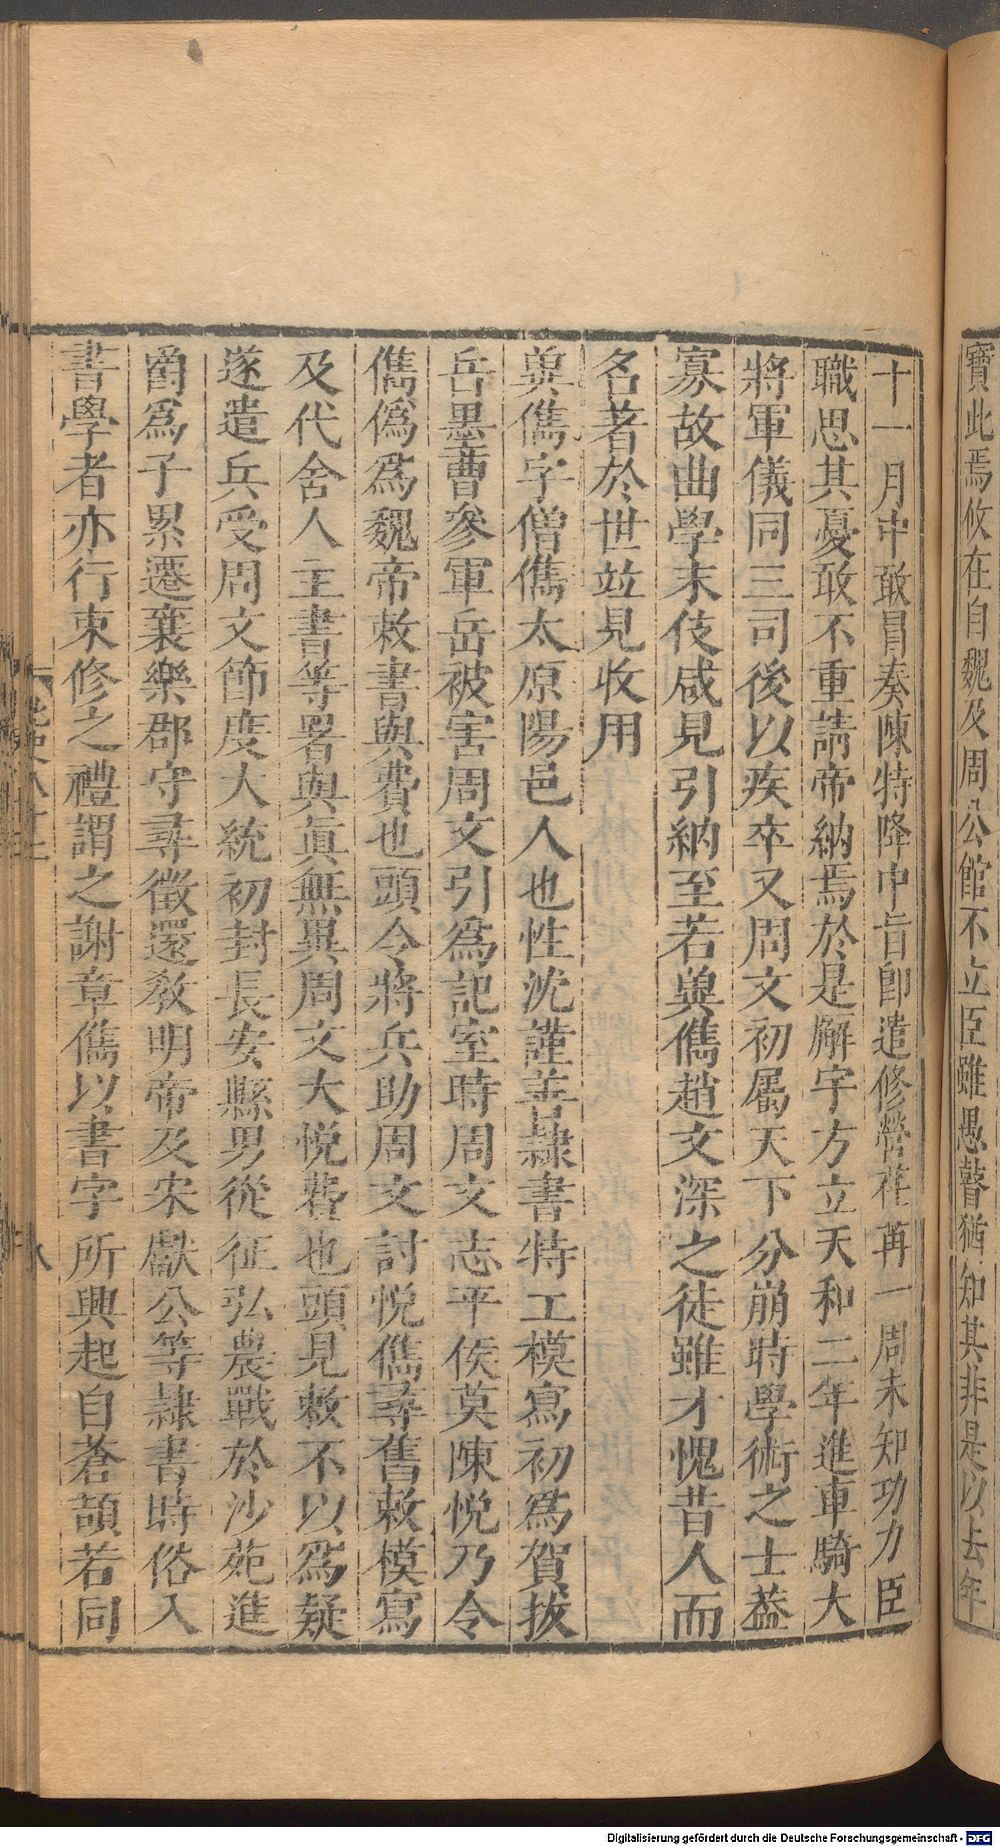 寶此焉攸在自魏及周公館不立臣雖愚瞽猶知其非是以去年
十一月中敢冒奏陳特降中旨卽遣修營荏苒一周未知功力臣
職思其憂敢不重請帝納焉於是廨宇方立天和二年進車騎大
將軍儀同三司後以疾卒又周文初屬天下分崩時學術之士葢
寡故曲學末伎咸見引納至若兾儁趙文深之徒雖才愧昔人而
名著於世竝見收用
兾儁字僧儁太原陽邑人也性沈謹善隷書特工模寫初爲賀拔
岳墨曹參軍岳被害周文引爲記室時周文志平侯莫陳悅乃令
儁僞爲魏帝敕書與費也頭令將兵助周文討悅儁尋舊敕模寫
及代舍人主書等署與眞無異周文大悅費也頭見敕不以爲疑
遂遣兵受周文節度大統初封長安縣男從征弘農戰於沙苑進
爵爲子累遷襄樂郡守尋徵還敎明帝及宋獻公等隷書時俗入
書學者亦行束修之禮謂之謝章儁以書字所興起自蒼頡若同
Digitalisierung gefördert durch die Deutsche Forschungsgemeinschaft - DFG